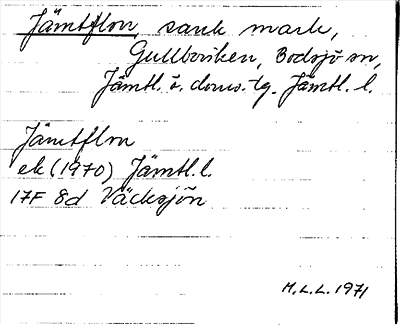 Jämtflon sank mark,
Gullboviken, Bodsjö sn,
Jämtl. ö. doms.-tg. Jämtl. l.
Jämtflon
ek (1970) Jämtl. l.
17F 8d Väcksjön
M.L.L. 1971